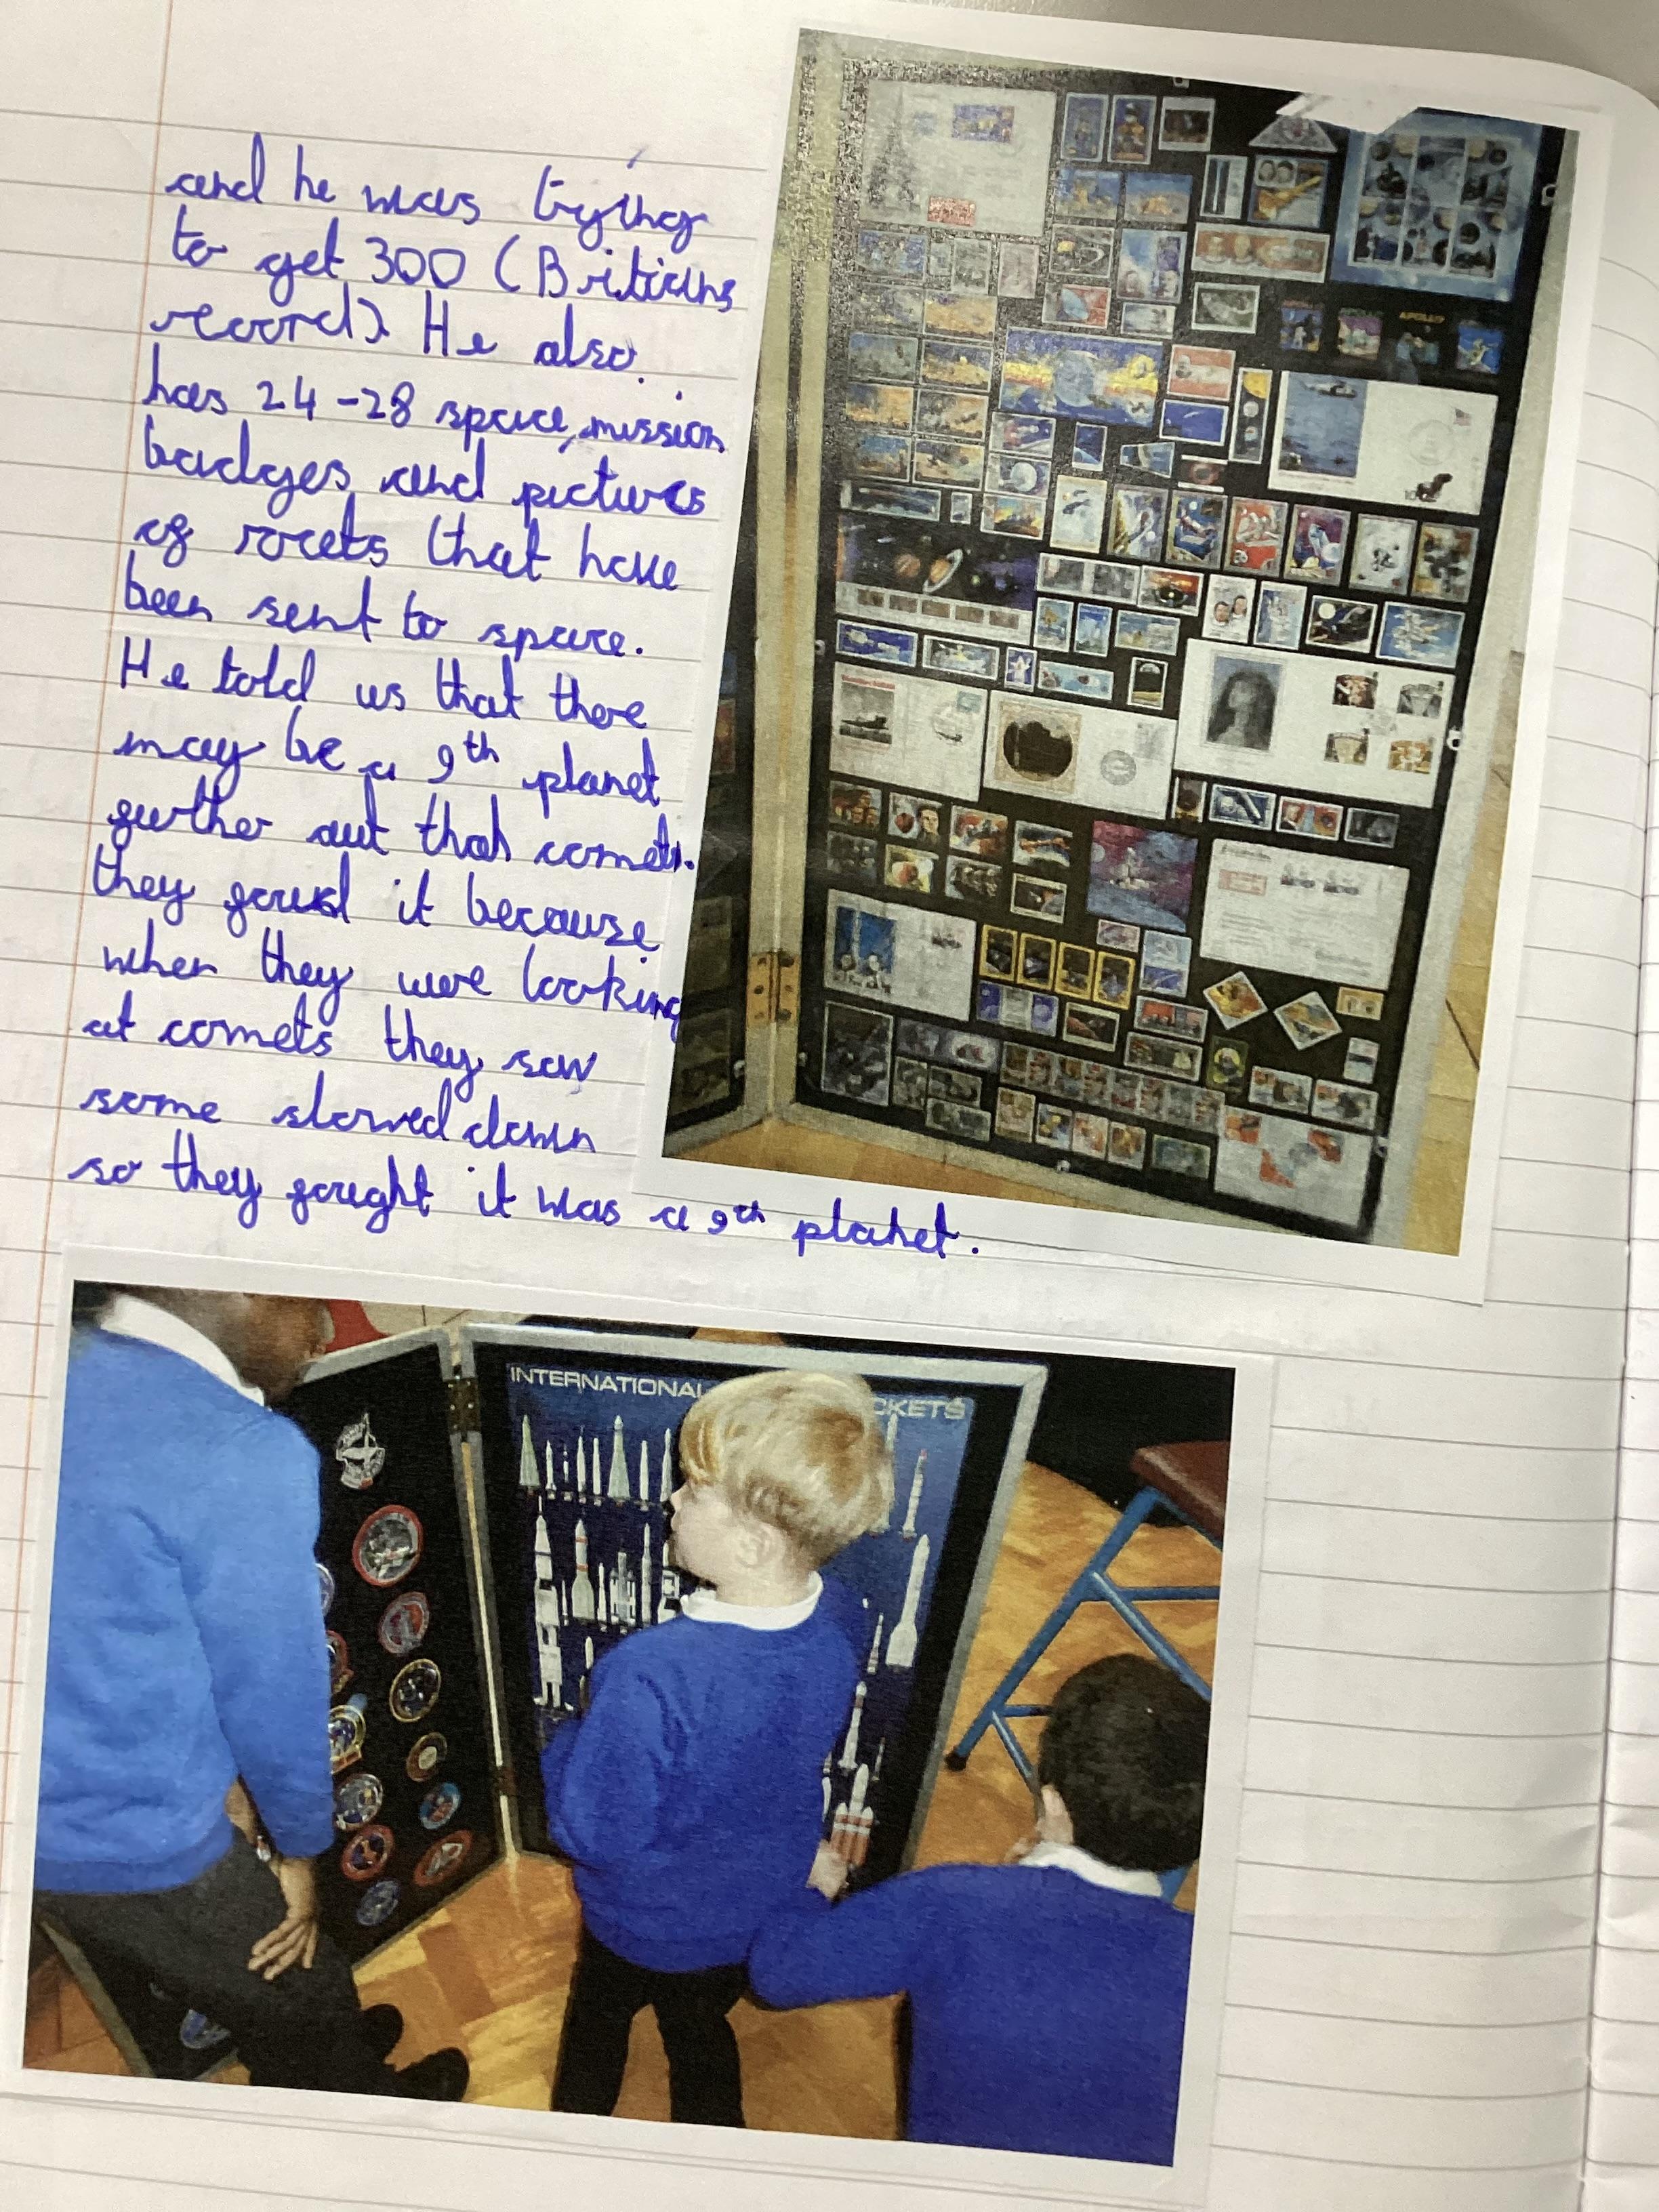 and he was trying
to get 300 (Briticins
record). He also
has 24-28 space, mission
badges and pictures
of rocets that have
been sent to space.
He told us that there
may be a 9th planet
further out that comets.
they found it because
when they were looking
at comets they saw
some slowed down
so they fought it was a 9th planet.
APOLLO
INTERNATIONAL
CKETS